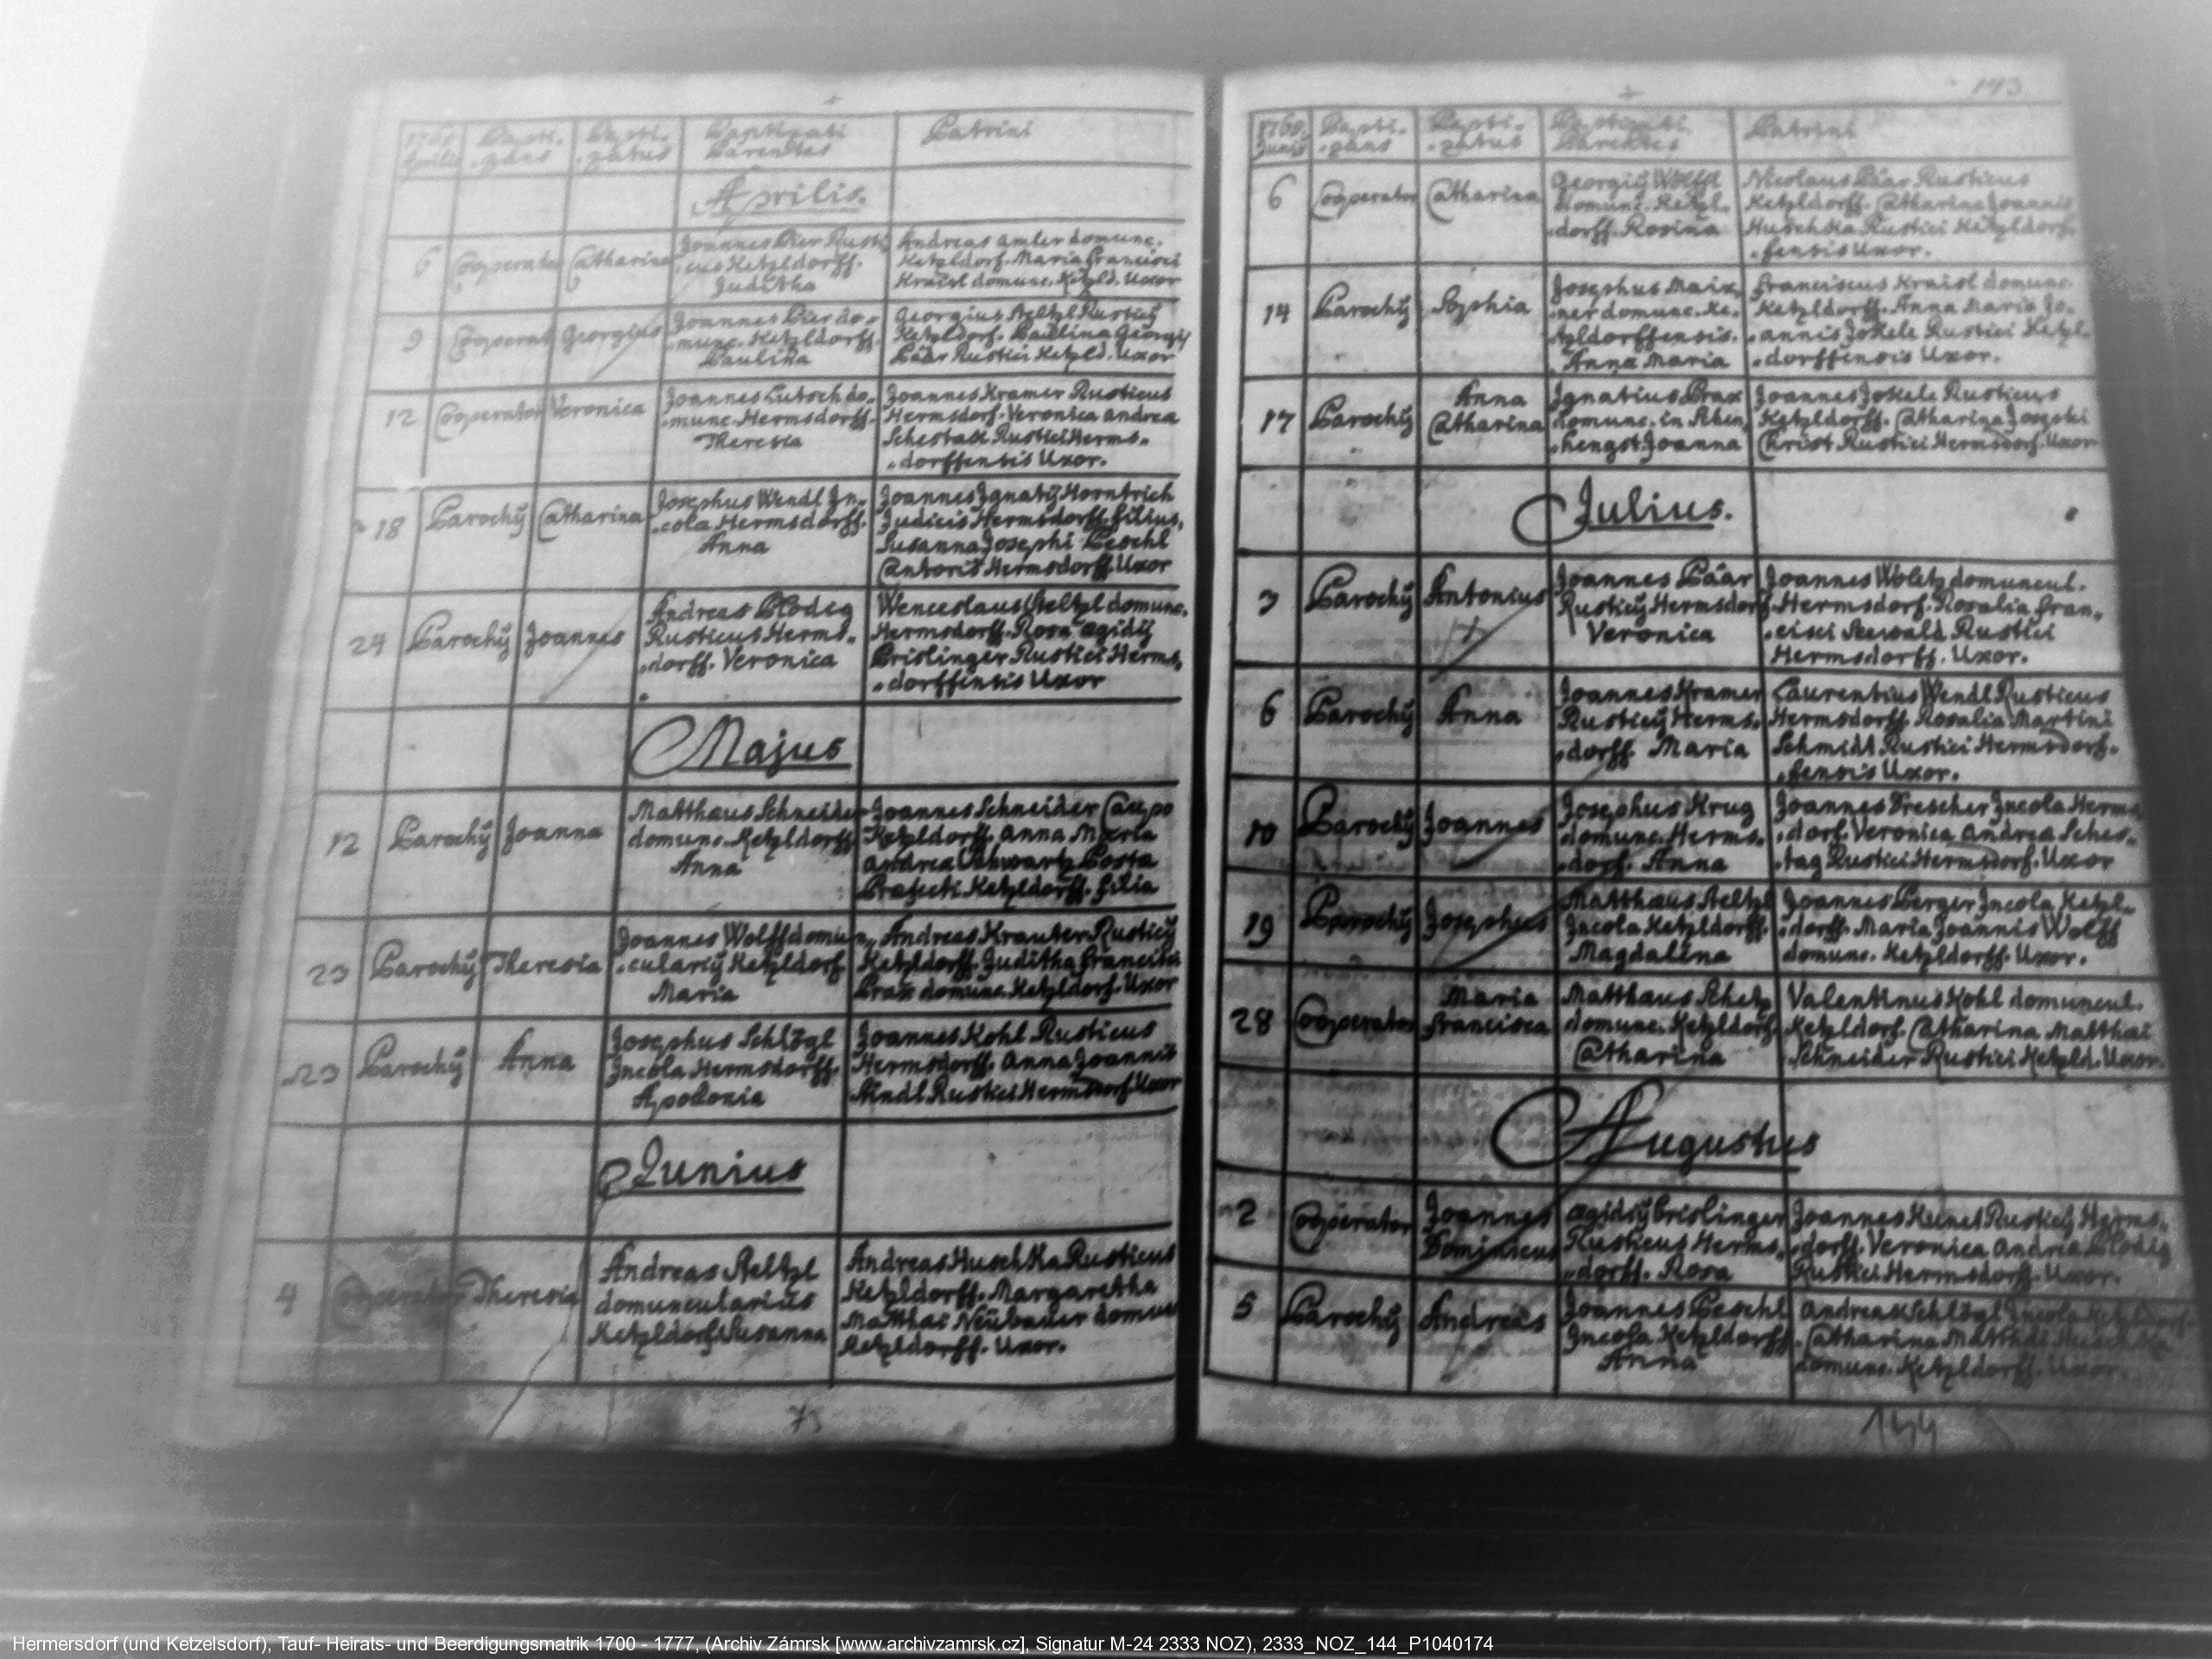 1760 Aprilis
Bapti-
-zans
Bapti-
-zatus
Baptizati
Parentes
Patrini
Aprilis.
6 Cooperator Catharina
Joannes Bier Rusti
-cus Ketzldorff.
Juditha
Andreas Amler domunc.
Ketzldorf. Maria Francisci
Kraisl domunc. Ketzld. Uxor
9 Cooperat Georgius
Joannes Bier do-
-munc. Ketzldorff.
Paulina
Georgius Steltzl Rusticy
Ketzldorf. Paulina Georgy
Päär Rustici Ketzld. Uxor
12 Cooperator Veronica
Joannes Lutsch do-
-munc. Hermsdorff.
Theresia
Joannes Kramer Rusticus
Hermsdorf. Veronica Andrea
Schestak Rustici Herms-
-dorffensis Uxor.
18 Parochy Catharina
Josephus Wendl In-
-cola Hermsdorff.
Anna
Joannes Ignaty Horntrich
Judicis Hermsdorff. filius,
Susanna Josephi Peschl
Cantoris Hermsdorff. Uxor
24 Parochy Joannes
Andreas Blodig
Rusticus Herms-
-dorff. Veronica
Wenceslaus Steltzl domunc.
Hermsdorff. Rosa Ægidy
Brislinger Rustici Herms-
-dorffensis Uxor
Majus
12 Parochy Joanna
Matthæus Schneider
domunc. Ketzldorff
Anna
Joannes Schneider Caupo
Ketzldorff. Anna Maria
Andrea Schwartz Posta
Præfecti Ketzldorff. filia
23 Parochy Theresia
Joannes Wolff domun-
-culariy Ketzldorf.
Maria
Andreas Krauter Rusticy
Ketzldorff. Juditha Francisci
Brax domunc. Ketzldorf. Uxor
23 Parochy Anna
Josephus Schlögl
Incola Hermsdorff.
Apollonia
Joannes Kohl Rusticus
Hermsdorff. Anna Joannis
Rustici Hermsdorf. Uxor
Junius
4 Cooperator Theresia
Andreas Steltzl
domuncularius
Ketzldorf. Susanna
Andreas Huschka Rusticus
Ketzldorff. Margaretha
Matthæi Neübauer domun
Ketzldorff. Uxor.
73
143
1760. Junis
Bapti-
-zans
Bapti-
-zatus
Baptizati
Parentes
Patrini
6 Cooperator Catharina
Georgiy Wolff
domunc. Ketzl-
-dorff. Rosina
Nicolaus Päär Rusticus
Ketzldorff. Catharina Joannis
Huschka Rustici Ketzldorf-
-fensis Uxor.
14 Parochy Sophia
Josephus Maix-
-ner domunc. Ke-
-tzldorffensis.
Anna Maria
Franciscus Kraisl domunc.
Ketzldorff. Anna Maria Jo-
-annis Jokele Rustici Ketzl-
-dorffensis Uxor.
17 Parochy Anna Catharina
Ignatius Brax
domunc. in
-hengst. Joanna
Joannes Jokele Rusticus
Ketzldorff. Catharina Josephi
Christ Rustici Hermsdorf. Uxor
Julius.
3 Parochy Antonius
Joannes Päär
Rusticy Hermsdorf.
Veronica
Joannes Woletz domuncul.
Hermsdorf. Rosalia Fran-
-cisci Seewald Rustici
Hermsdorff. Uxor.
6 Parochy Anna
Joannes Kramer
Rusticy Herms-
-dorff. Maria
Laurentius Wendl Rusticus
Hermsdorff. Rosalia Martini
Schmidt Rustici Hermsdorf-
-fensis Uxor.
10 Parochy Joannes
Josephus Krug
domunc. Herms-
-dorf. Anna
Joannes Trescher Incola Herms
-dorf. Veronica Andrea Sches-
-tag Rustici Hermsdorf. Uxor
19 Parochy Josephus
Matthæus Steltzl
Incola Ketzldorff.
Magdalena
Joannes Berger Incola Ketzl-
-dorff. Maria Joannis Wolff
domunc. Ketzldorff. Uxor.
28 Cooperator Maria Francisca
Matthæus Schetz
domunc. Ketzldorf.
Catharina
Valentinus Kohl domuncul.
Ketzldorf. Catharina Matthæi
Schneider Rustici Ketzld. Uxor.
Augustus
2 Cooperator Joannes Dominicus
Ægidiy Brislinger
Rusticus Herms-
-dorff. Rosa
Joannes Kunet Rusticy Herms-
-dorff. Veronica Andrea Blodig
Rustici Hermsdorff. Uxor.
5 Parochy Andreas
Joannes Peschl
Incola Ketzldorff
Anna
Andreas Schlögl Incola Ketzldorf.
Catharina Matthæi Huschka
domunc. Ketzldorff. Uxor.
144
Hermersdorf (und Ketzelsdorf), Tauf- Heirats- und Beerdigungsmatrik 1700 - 1777, (Archiv Zámrsk [www.archivzamrsk.cz], Signatur M-24 2333 NOZ), 2333_NOZ_144_P1040174